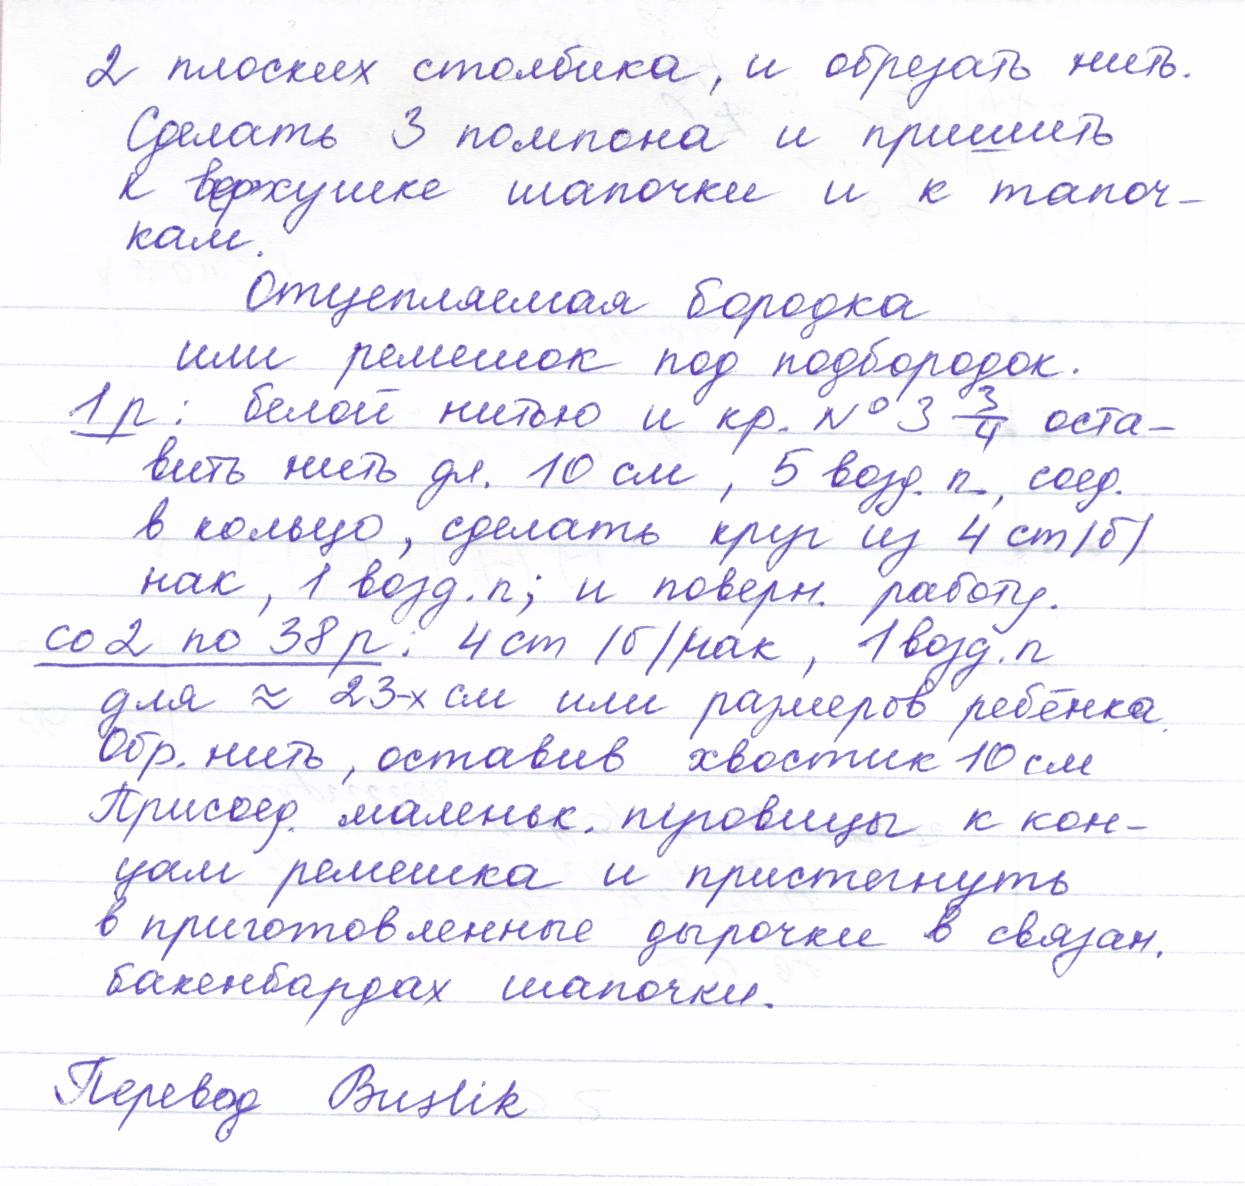 2 плоских столбика, и обрезать нить.
Сделать 3 помпона и пришить
к верхушке шапочки и к тапоч-
кам.
Отцепляемая бородка
или ремешок под подбородок.
1 р: белой нитью и кр. № 3 3/4 оста-
вить нить дл. 10 см, 5 возд. п., соед.
в кольцо, сделать круг из 4 ст/б/
нак, 1 возд. п; и поверн. работу.
со 2 по 38 р: 4 ст /б/нак, 1 возд. п
для ≈ 23-х см или размеров ребёнка.
Обр. нить, оставив хвостик 10 см
Присоед. маленьк. пуговицы к кон-
цам ремешка и пристегнуть
в приготовленные дырочки в связан.
бакенбардах шапочки.
Перевод Buslik